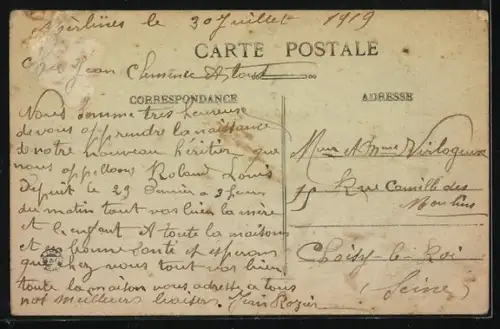 Mérlines le 30 Juillet 1919
CARTE POSTALE
Cher Jean Clemence et tout
CORRESPONDANCE
ADRESSE
Nous somme tres heureuse
de vous apprendre la naissance
de notre nouveau héritier que
nous appellons Roland Louis
Depuit le 29 a 3 heures
du matin tout vas bien la mère
et l'enfant A toute la maisons
et bonne santé et esperons
que chez vous tout vas bien
toute la maison vous adresse a tous
nos meilleurs baiser. Rozier
Mr et Mme Virlogeux
15 Rue Camille des
Moulins
Choisy-le-Roi
(Seine)